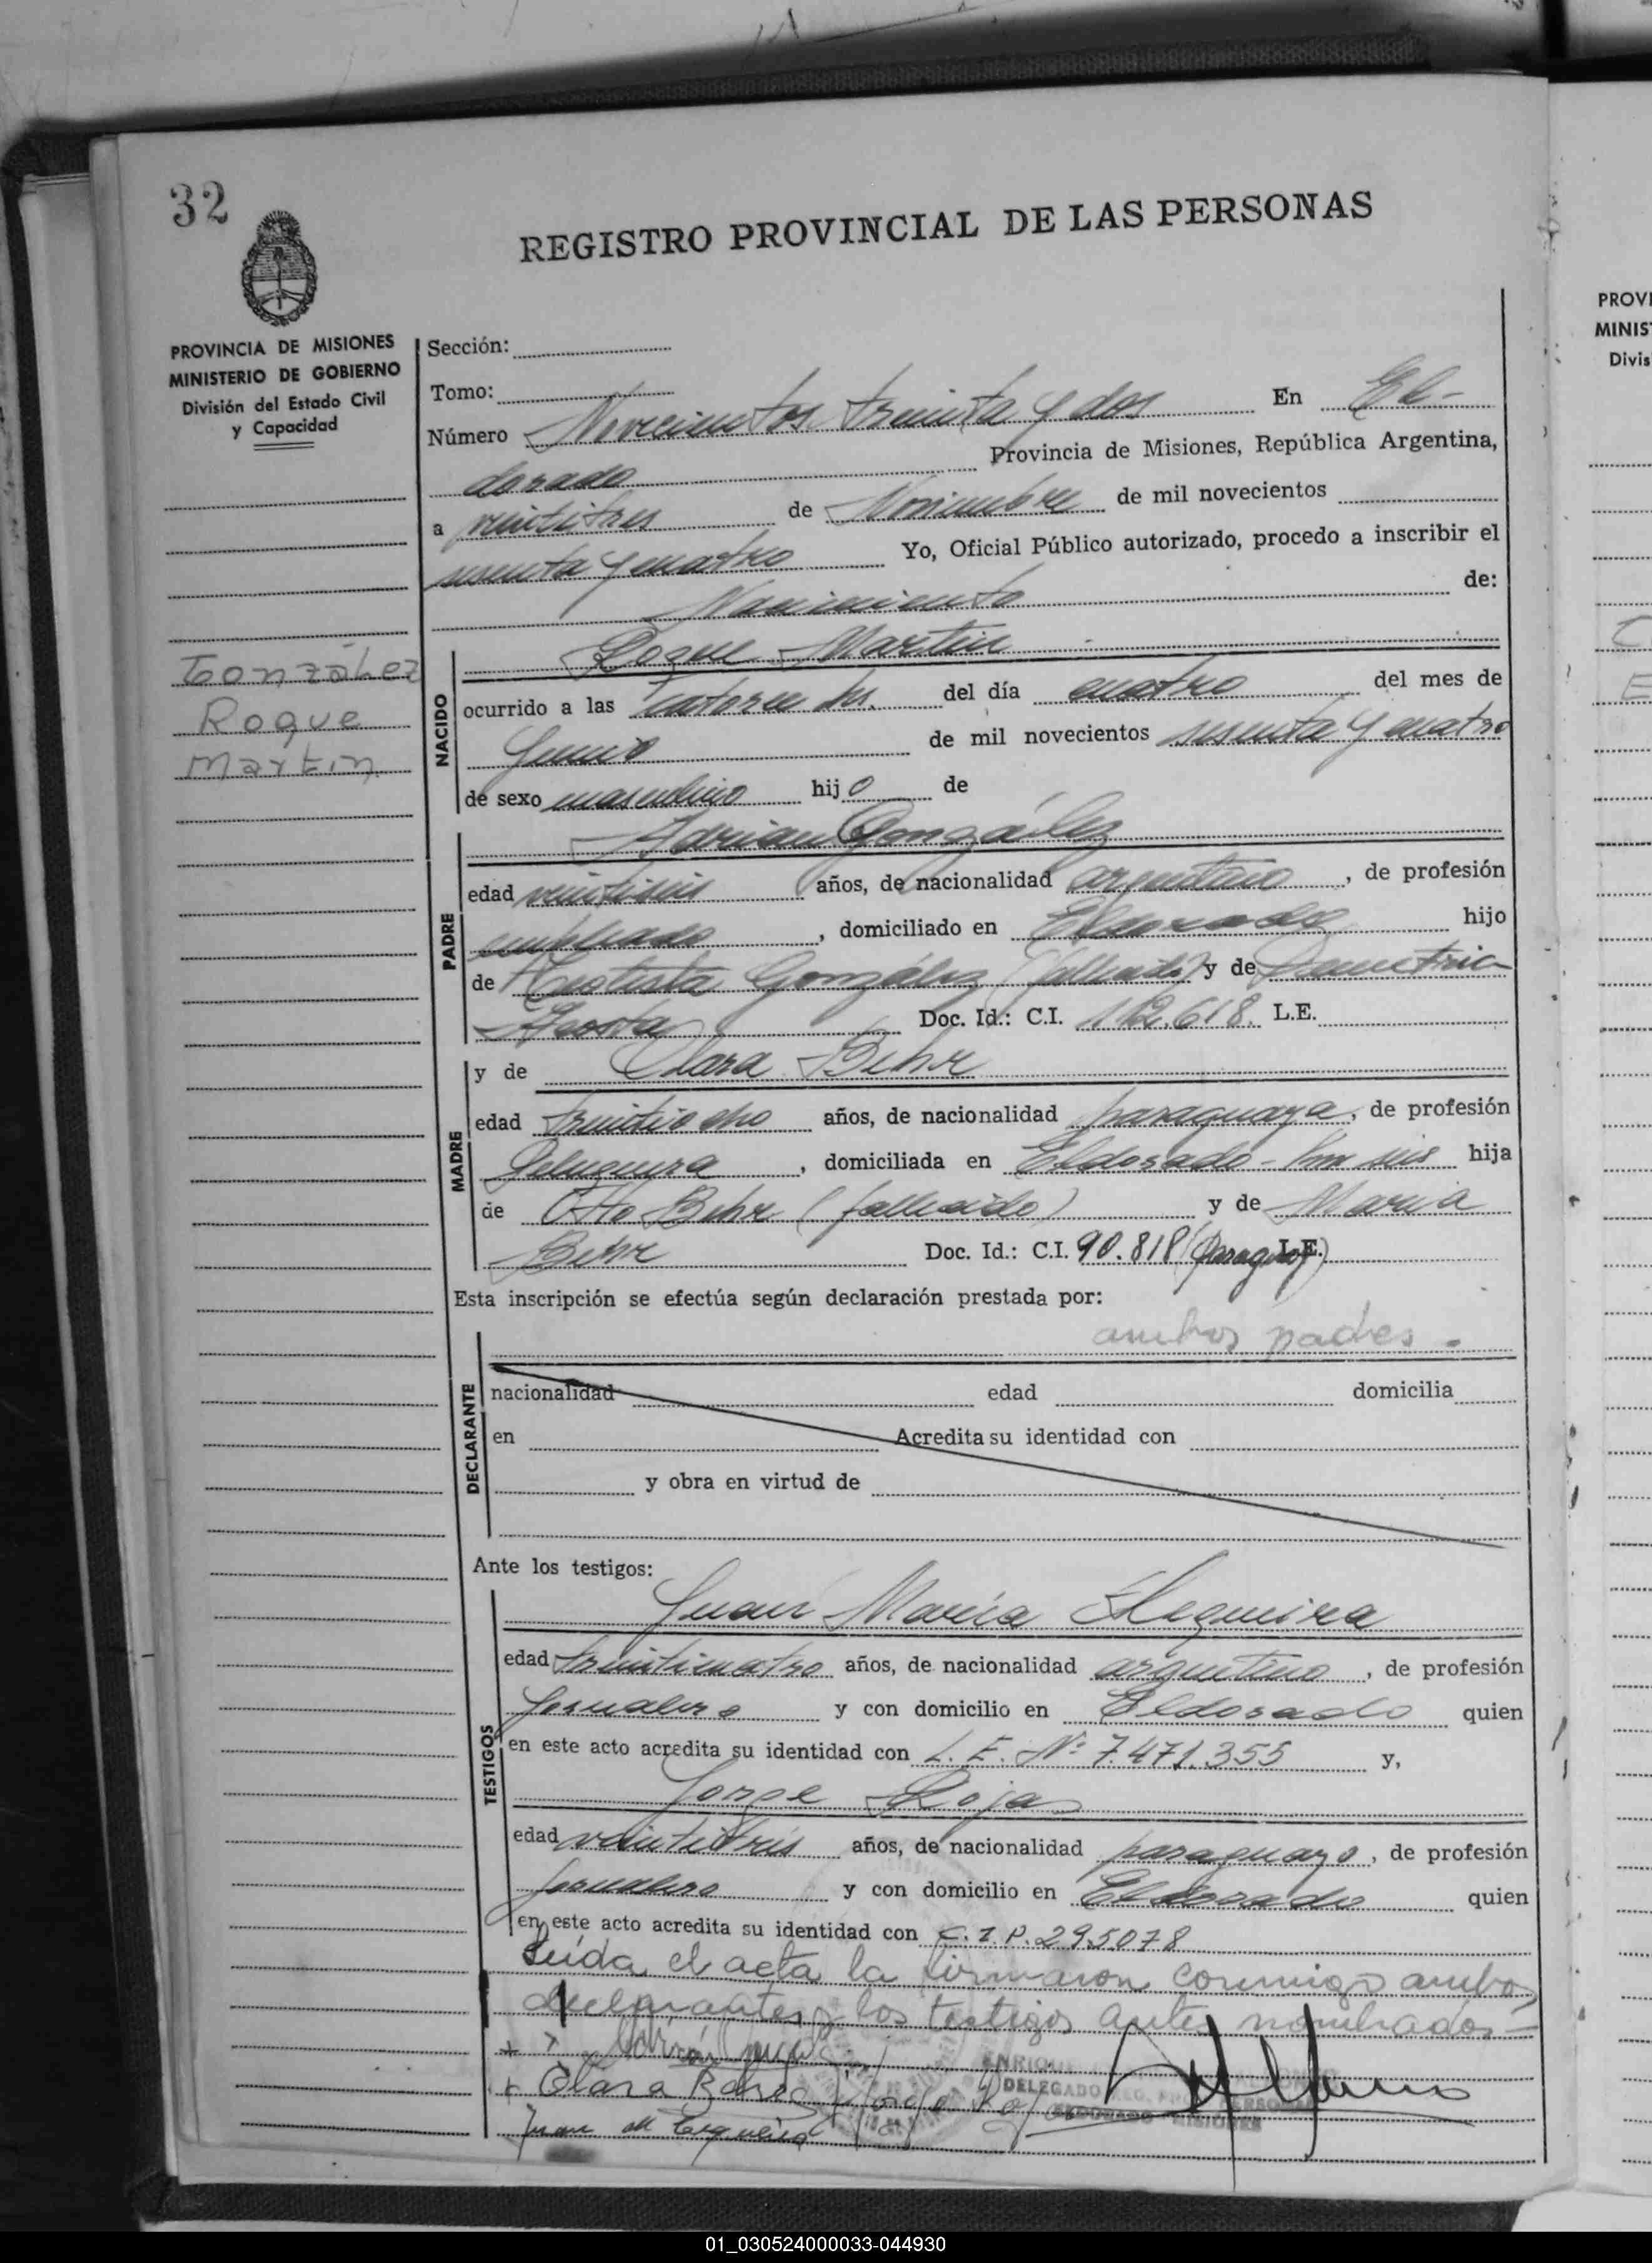 32
REGISTRO PROVINCIAL DE LAS PERSONAS
PROVINCIA DE MISIONES
MINISTERIO DE GOBIERNO
División del Estado Civil
y Capacidad
González
Roque
Martin
Sección:
Tomo:
Número Novecientos treinta y dos En El-
dorado Provincia de Misiones, República Argentina,
a veintitres de Noviembre de mil novecientos
sesenta y cuatro Yo, Oficial Público autorizado, procedo a inscribir el
Nacimiento de:
NACIDO
Roque Martin
ocurrido a las catorce hs. del día cuatro del mes de
Junio de mil novecientos sesenta y cuatro
de sexo masculino hijo de
PADRE
Adrian González
edad veintiseis años, de nacionalidad argentino, de profesión
empleado, domiciliado en Eldorado hijo
de Bautista González (fallecido) y de Demetria
Acosta Doc. Id.: C.I. 112.618. L.E.
MADRE
y de Clara Behr
edad treintiocho años, de nacionalidad paraguaya, de profesión
Peluquera, domiciliada en Eldorado - Km seis hija
de Otto Behr (fallecido) y de Maria
Behr Doc. Id.: C.I. 90.818 (Paraguay) L.E.
Esta inscripción se efectúa según declaración prestada por:
DECLARANTE
ambos padres.
nacionalidad edad domicilia
en Acredita su identidad con
y obra en virtud de
Ante los testigos:
TESTIGOS
Juan Maria
edad treinticuatro años, de nacionalidad argentino, de profesión
Jornalero y con domicilio en Eldorado quien
en este acto acredita su identidad con L. E. Nº 7.471.355 y,
Jorge Rojas
edad veintitres años, de nacionalidad paraguayo, de profesión
Jornalero y con domicilio en Eldorado quien
en este acto acredita su identidad con C.I.P. 295078
Leída el acta la firmaron conmigo ambos
declarantes y los testigos antes nombrados-
Clara Jorge Rojas
Juan M
ENRIQUE
DELEGADO REG. PERSONAS
ELDORADO MISIONES
PROVI
MINIS
Divis
01_030524000033-044930